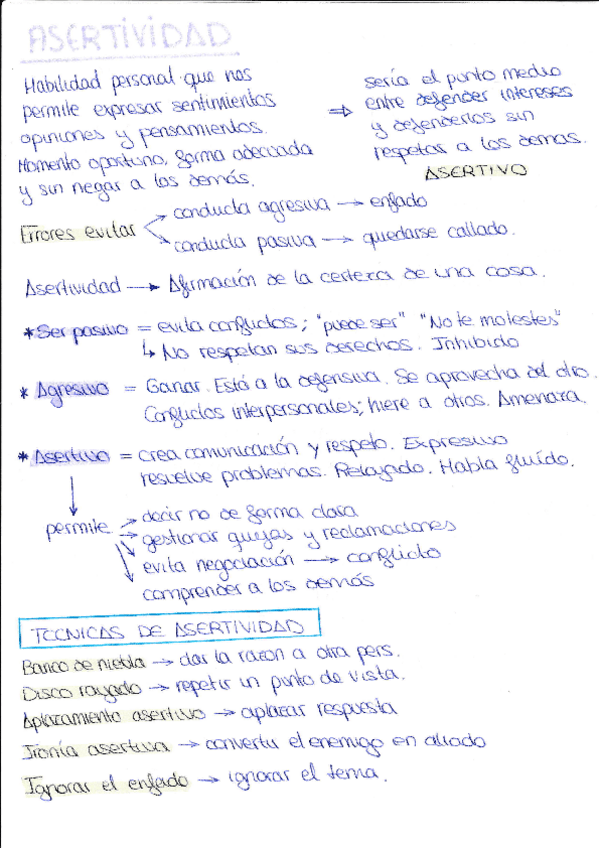 ASERTIVIDAD
Habilidad personal que nos
permite expresar sentimientos
opiniones y pensamientos.
Momento oportuno, forma adecuada
y sin negar a los demás.
⇒ sería el punto medio
entre defender intereses
y defenderlos sin
respetar a los demas.
ASERTIVO
Errores evitar → conducta agresiva → enfado
→ conducta pasiva → quedarse callado.
Asertividad → Afirmación de la certeza de una cosa.
*Ser pasivo = evita conflictos; "puede ser" "No te molestes"
↳ No respetan sus derechos. Inhibido
* Agresivo = Ganar. Está a la defensiva. Se aprovecha del otro.
Conflictos interpersonales; hiere a otros. Amenaza.
* Asertivo = crea comunicación y respeto. Expresivo
resuelve problemas. Relajado. Habla fluído.
↓
permite → decir no de forma clara
→ gestionar quejas y reclamaciones
↘ evita negociación → conflicto
↘ comprender a los demás
TECNICAS DE ASERTIVIDAD
Banco de niebla → dar la razon a otra pers.
Disco rayado → repetir un punto de vista.
Aplazamiento asertivo → aplazar respuesta
Ironía asertiva → convertir el enemigo en aliado
Ignorar el enfado → ignorar el tema.